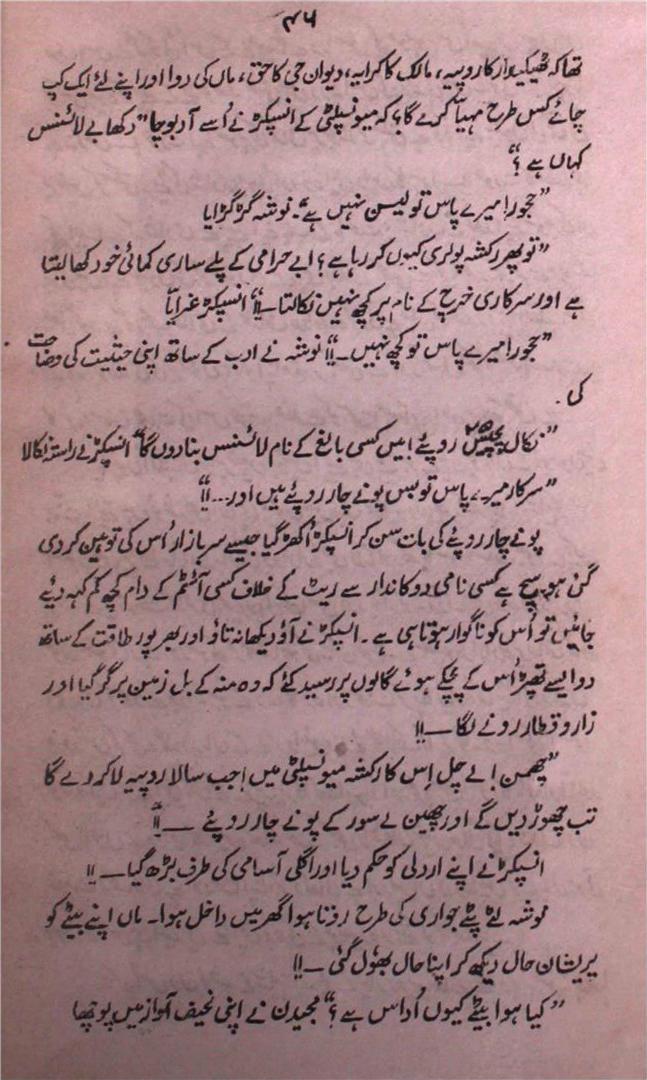 ۴۶
تھا کہ ٹھیکیدار کا روپیہ، مالک کا کرایہ، دیوان جی کا حق، ماں کی دوا اور اپنے لئے ایک کپ
چائے کس طرح مہیّا کرے گا؟ کہ میونسپلٹی کے انسپکڑ نے اُسے آ دبوچا "دکھا بے لائسنس
کہاں ہے؟"
"حجور! میرے پاس تو لیسن نہیں ہے"۔ نوشہ گڑگڑایا
"تو پھر رکشہ پولری کیوں کر رہا ہے؟ ابے حرامی کے پلے ساری کمائی خود کھا لیتا
ہے اور سرکاری خرچ کے نام پر کچھ نہیں نکالتا۔!!" انسپکڑ غرایا
"حجور! میرے پاس تو کچھ نہیں۔!!" نوشہ نے ادب کے ساتھ اپنی حیثیت کی وضاحت
کی۔
"نکال پچیس ۲۵ روپئے! میں کسی بالغ کے نام لائسنس بنا دوں گا" انسپکڑ نے راستہ نکالا
"سرکار میرے پاس تو بس پونے چار روپئے ہیں اور...!!"
پونے چار روپئے کی بات سن کر انسپکڑ اُکھڑ گیا جیسے سر بازار اُس کی توہین کر دی
گئی ہو۔ سچ ہے کسی نامی دوکاندار سے ریٹ کے خلاف کسی آئٹم کے دام کچھ کم کہہ دیئے
جائیں تو اُس کو ناگوار ہوتا ہی ہے۔ انسپکڑ نے آؤ دیکھا نہ تاؤ اور بھرپور طاقت کے ساتھ
دو ایسے تھپڑ اُس کے پچکے ہوئے گالوں پر رسید کئے کہ وہ منہ کے بل زمین پر گر گیا اور
زار و قطار رونے لگا—!!
"چھمن! لے چل اِس کا رکشہ میونسپلٹی میں! جب سالا روپیہ لا کر دے گا
تب چھوڑ دیں گے اور چھین لے سور کے پونے چار روپئے —!!"
انسپکڑ نے اپنے اردلی کو حکم دیا اور اگلی آسامی کی طرف بڑھ گیا—!!
نوشہ لٹے پٹے جواری کی طرح روتا ہوا گھر میں داخل ہوا۔ ماں اپنے بیٹے کو
پریشان حال دیکھ کر اپنا حال بھول گئی —!!
"کیا ہوا بیٹے کیوں اُداس ہے؟" مجیدن نے اپنی نحیف آواز میں پوچھا